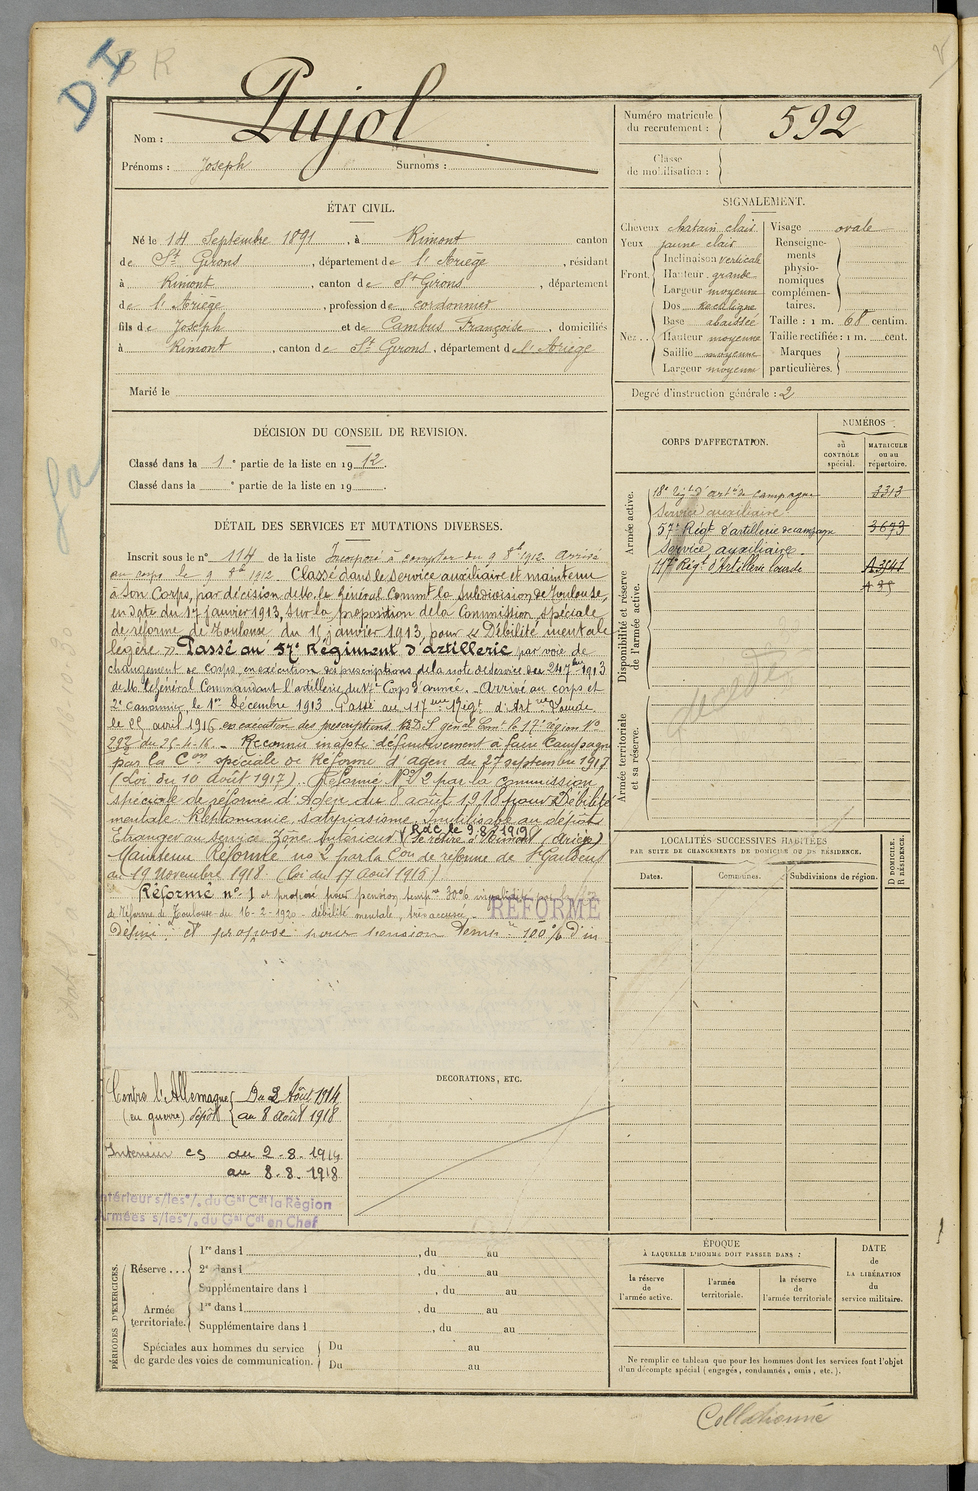 DI
B R
Pujol
Nom :
Prénoms : Joseph Surnoms :
Numéro matricule
du recrutement : 592
Classe
de mobilisation :
ÉTAT CIVIL.
Né le 14 Septembre 1891, à Rimont canton
de St Girons, département de l'Ariège, résidant
à Rimont, canton de St Girons, département
de l'Ariège, profession de cordonnier
fils de Joseph et de Cambus Françoise, domiciliés
à Rimont, canton de St Girons, département de l'Ariège
Marié le
SIGNALEMENT.
Cheveux chatain clair
Yeux jaune clair
Front. Inclinaison verticale
Hauteur grande
Largeur moyenne
Nez.. Dos rectiligne
Base abaissée
Hauteur moyenne
Saillie moyenne
Largeur moyenne
Visage ovale
Renseigne-
ments
physio-
nomiques
complémen-
taires.
Taille : 1 m. 68 centim.
Taille rectifiée : 1 m. cent.
Marques
particulières.
Degré d'instruction générale : 2
DÉCISION DU CONSEIL DE REVISION.
Classé dans la 1e partie de la liste en 1912.
Classé dans la e partie de la liste en 19
CORPS D'AFFECTATION.
NUMÉROS
au
CONTRÔLE
spécial.
MATRICULE
ou au
répertoire.
Armée active.
18e Rgt d'artie de campagne 3313
Service auxiliaire.
57e Régt d'artillerie de campagne 3673
Service auxiliaire.
Disponibilité et réserve
de l'armée active.
117e Régt d'Artillerie lourde
Armée territoriale
et sa réserve.
DÉTAIL DES SERVICES ET MUTATIONS DIVERSES.
Inscrit sous le n° 114 de la liste Incorporé à compter du 9 8bre 1912. Arrivé
au corps le 9 8bre 1912. Classé dans le Service auxiliaire et maintenu
à son Corps, par décision de M. le Général Commt la Subdivision de Toulouse,
en date du 17 janvier 1913, sur la proposition de la Commission spéciale
de réforme de Toulouse du 15 janvier 1913, pour « Débilité mentale
légère ». Passé au 57e Régiment d'artillerie par voie de
changement de corps, en exécution des prescriptions de la note de service du 24 7bre 1913
de M. le Général Commandant l'artillerie du Corps d'armée. Arrivé au corps et
2e canonnier le 1er Décembre 1913. Passé au 117ème Régt d'Artie lourde
le 25 avril 1916 en exécution des prescriptions
292 du 25-4-16. Reconnu inapte définitivement à faire campagne
par la Con spéciale de Réforme d'Agen du 27 septembre 1917
(Loi du 10 Août 1917). Réformé N° 2 par la commission
spéciale de réforme d'Agen du 8 août 1918 pour Débilité
mentale. Kleptomanie satyriasisme. Inutilisable au dépôt
Etranger au service Zône Intérieur (Rdc le 9.8.1919)
Se retire à Rimont (Ariège)
Maintenu Réformé no 2 par la Con de réforme de St Gaudens
du 19 novembre 1918 (loi du 17 Août 1915)
Réformé n° 1 et proposé pour pension temp.re 30%
de Réforme de Toulouse du 16-2-1920 - débilité mentale, très accusée.
RÉFORMÉ
Défini : et proposé pour pension 100% d'in
LOCALITÉS SUCCESSIVES HABITÉES
PAR SUITE DE CHANGEMENTS DE DOMICILE OU DE RÉSIDENCE.
Dates.
Communes.
Subdivisions de région.
D DOMICILE.
R RÉSIDENCE.
Contre l'Allemagne Du 2 Août 1914
(en guerre) dépôt au 8 Août 1918
Intérieur cs du 2-8-1914
au 8.8.1918
Intérieur s/les °/. du Gal Cdt la Région
Armées s/les °/. du Gal Cdt en Chef
DÉCORATIONS, ETC.
PÉRIODES D'EXERCICES.
Réserve ... 1re dans l , du au
2e dans l , du au
Supplémentaire dans l , du au
Armée
territoriale. 1re dans l , du au
Supplémentaire dans l , du au
Spéciales aux hommes du service
de garde des voies de communication. Du au
Du au
ÉPOQUE
À LAQUELLE L'HOMME DOIT PASSER DANS :
la réserve
de
l'armée active.
l'armée
territoriale.
la réserve
de
l'armée territoriale
DATE
de
LA LIBÉRATION
du
service militaire.
Ne remplir ce tableau que pour les hommes dont les services font l'objet
d'un décompte spécial (engagés, condamnés, omis, etc.).
Collationné